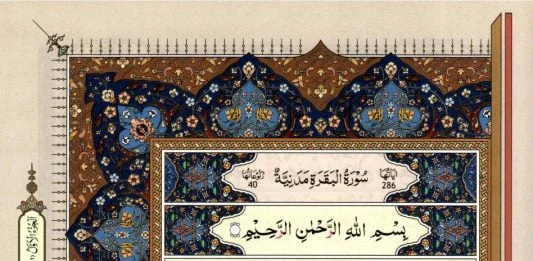 اٰيَاتُهَا 286 سُوْرَةُ الْبَقَرَةِ مَدَنِيَّةٌ رُكُوْعَاتُهَا 40
بِسْمِ اللهِ الرَّحْمٰنِ الرَّحِيْمِ
اَلْجُزْءُ الْاَوَّلُ